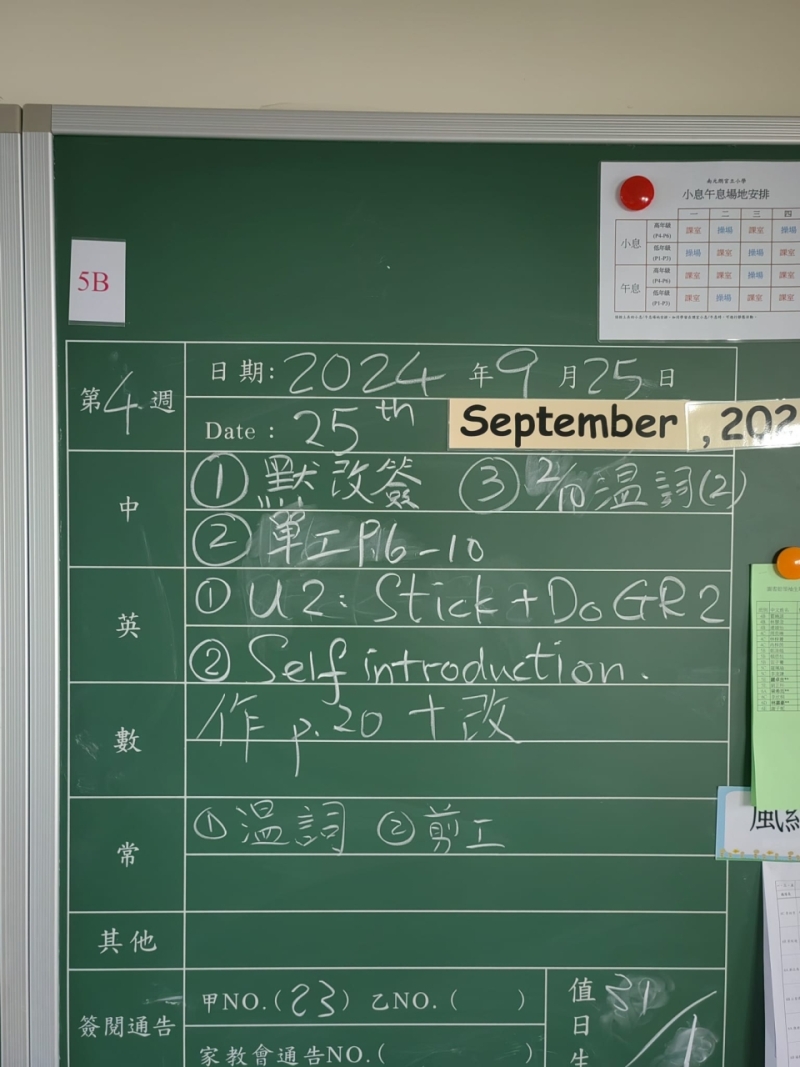 小息午息場地安排
一 二 三 四
小息 高年級 (P4-P6) 課室 操場 課室 操場
低年級 (P1-P3) 操場 課室 操場 課室
午息 高年級 (P4-P6) 課室 課室 操場 課室
低年級 (P1-P3) 課室 操場 課室 課室
5B
第4週 日期: 2024 年 9 月 25 日
Date : 25th September , 202
中 ① 默改簽 ③ 2/10 溫詞(2)
② 單工 P.6-10
英 ① U2: Stick + Do GR2
② Self introduction.
數 作 p.20 + 改
常 ① 溫詞 ② 剪工
其他
簽閱通告 甲NO.(23) 乙NO.( )
家教會通告NO.( )
值日生 31
1